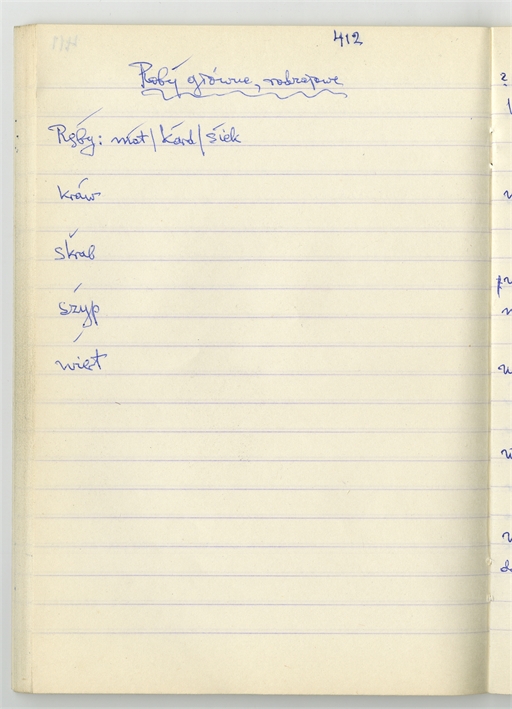 412
Rąbý główne, rodzajowe
Rąby: młot / kard / siek
kráw
skrab
szyp
wiert